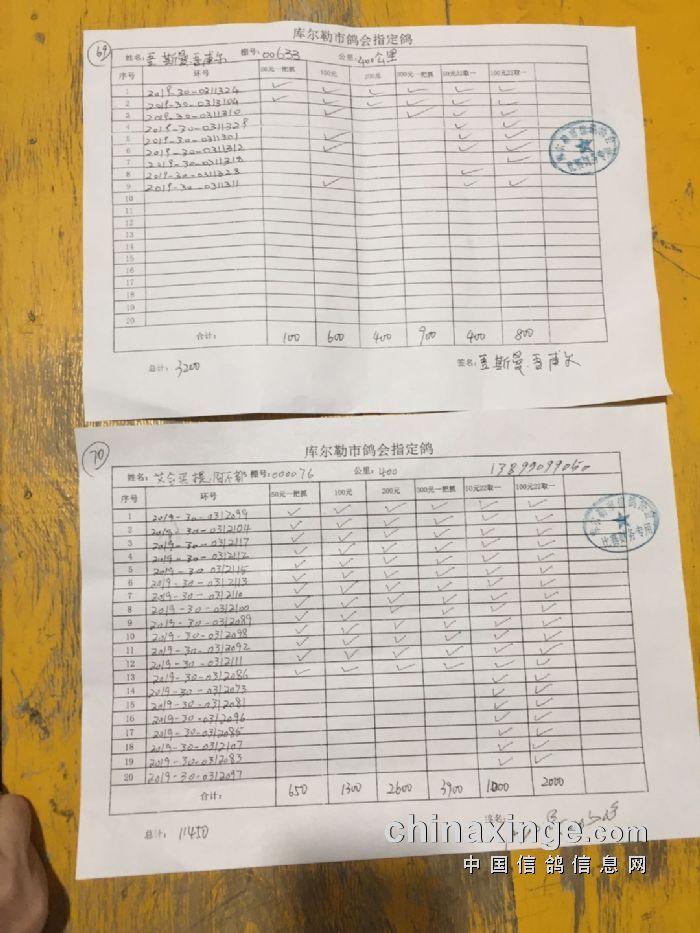 69
库尔勒市鸽会指定鸽
姓名: 斯曼 棚号: 00633 公里: 400公里
序号 环号 50元一把抓 100元 200元 300元一把抓 50元22取一 100元22取一
1 2019-30-0311324 ✓ ✓ ✓ ✓ ✓ ✓
2 2019-30-0313104 ✓ ✓ ✓ ✓ ✓ ✓
3 2019-30-0311310 ✓ ✓ ✓ ✓
4 2019-30-0311329 ✓ ✓
5 2019-30-0311301 ✓ ✓ ✓
6 2019-30-0311312 ✓ ✓ ✓
7 2019-30-0311318 ✓
8 2019-30-0311328 ✓
9 2019-30-0311311 ✓ ✓ ✓
10
11
12
13
14
15
16
17
18
19
20
合计: 100 600 400 900 400 800
总计: 3200 签名: 斯曼
70
库尔勒市鸽会指定鸽
姓名: 棚号: 000076 公里: 400 13899099060
序号 环号 50元一把抓 100元 200元 300元一把抓 50元22取一 100元22取一
1 2019-30-0312099 ✓ ✓ ✓ ✓ ✓ ✓
2 2019-30-0312104 ✓ ✓ ✓ ✓ ✓ ✓
3 2019-30-0312117 ✓ ✓ ✓ ✓ ✓ ✓
4 2019-30-0312112 ✓ ✓ ✓ ✓ ✓ ✓
5 2019-30-0312115 ✓ ✓ ✓ ✓ ✓ ✓
6 2019-30-0312113 ✓ ✓ ✓ ✓ ✓ ✓
7 2019-30-0312110 ✓ ✓ ✓ ✓ ✓ ✓
8 2019-30-0312100 ✓ ✓ ✓ ✓ ✓ ✓
9 2019-30-0312089 ✓ ✓ ✓ ✓ ✓ ✓
10 2019-30-0312098 ✓ ✓ ✓ ✓ ✓ ✓
11 2019-30-0312092 ✓ ✓ ✓ ✓ ✓ ✓
12 2019-30-0312111 ✓ ✓ ✓ ✓ ✓ ✓
13 2019-30-0312086 ✓ ✓ ✓ ✓ ✓ ✓
14 2019-30-0312073 ✓ ✓
15 2019-30-0312081 ✓ ✓
16 2019-30-0312096 ✓ ✓
17 2019-30-0312085 ✓ ✓
18 2019-30-0312107 ✓ ✓
19 2019-30-0312083 ✓ ✓
20 2019-30-0312097 ✓ ✓
合计: 650 1300 2600 3900 1000 2000
总计: 11450 签名:
chinaxinge.com
中国信鸽信息网